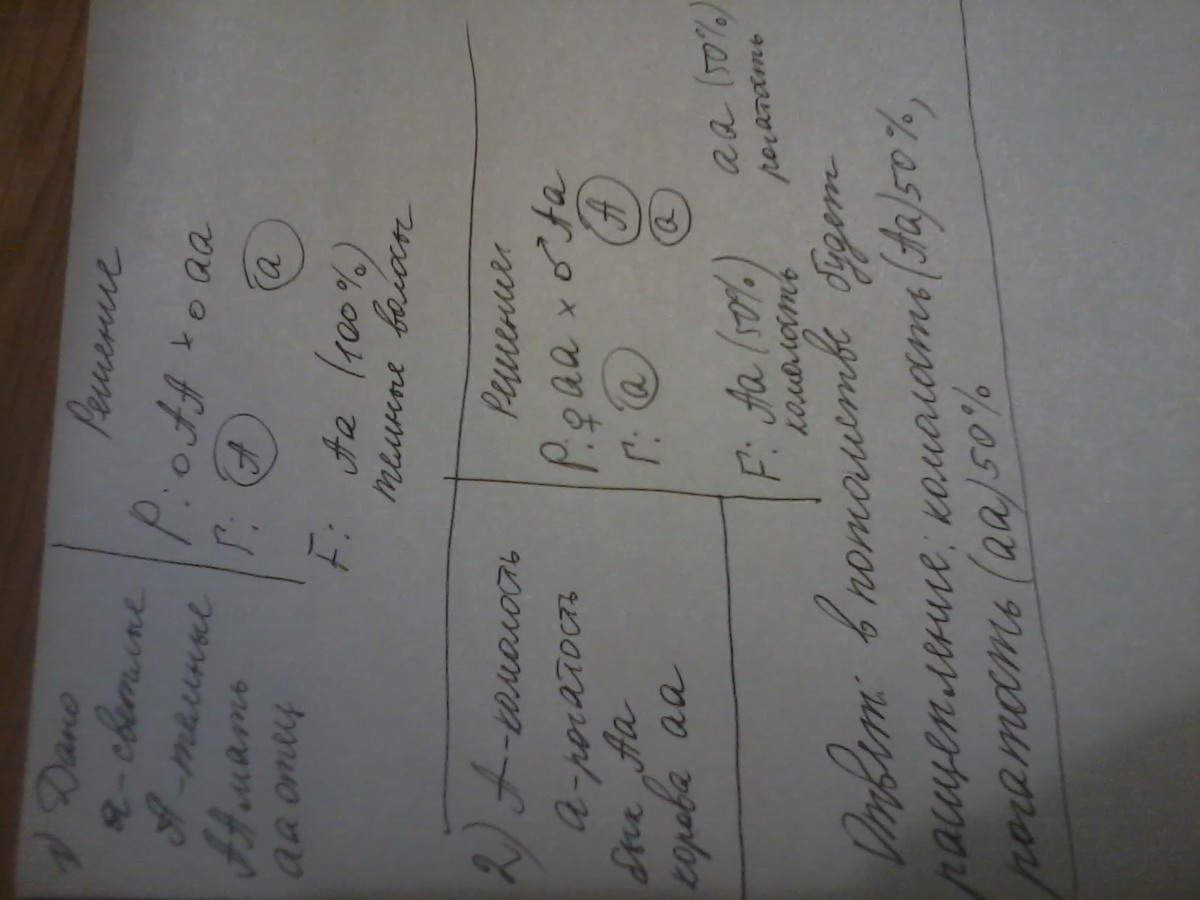 1) Дано
а-светлые
А-темные
АА мать
аа отец
Решение
Р: о АА х о аа
Г: А а
F: Аа (100%)
темные волосы
2) А-комолость
а-рогатость
бык Аа
корова аа
Решение
Р: ♀ аа х ♂ Аа
Г: а А
а
F: Аа (50%) аа (50%)
комолость рогатость
Ответ: в потомстве будет
расщепление: комолость (Аа) 50%,
рогатость (аа) 50%